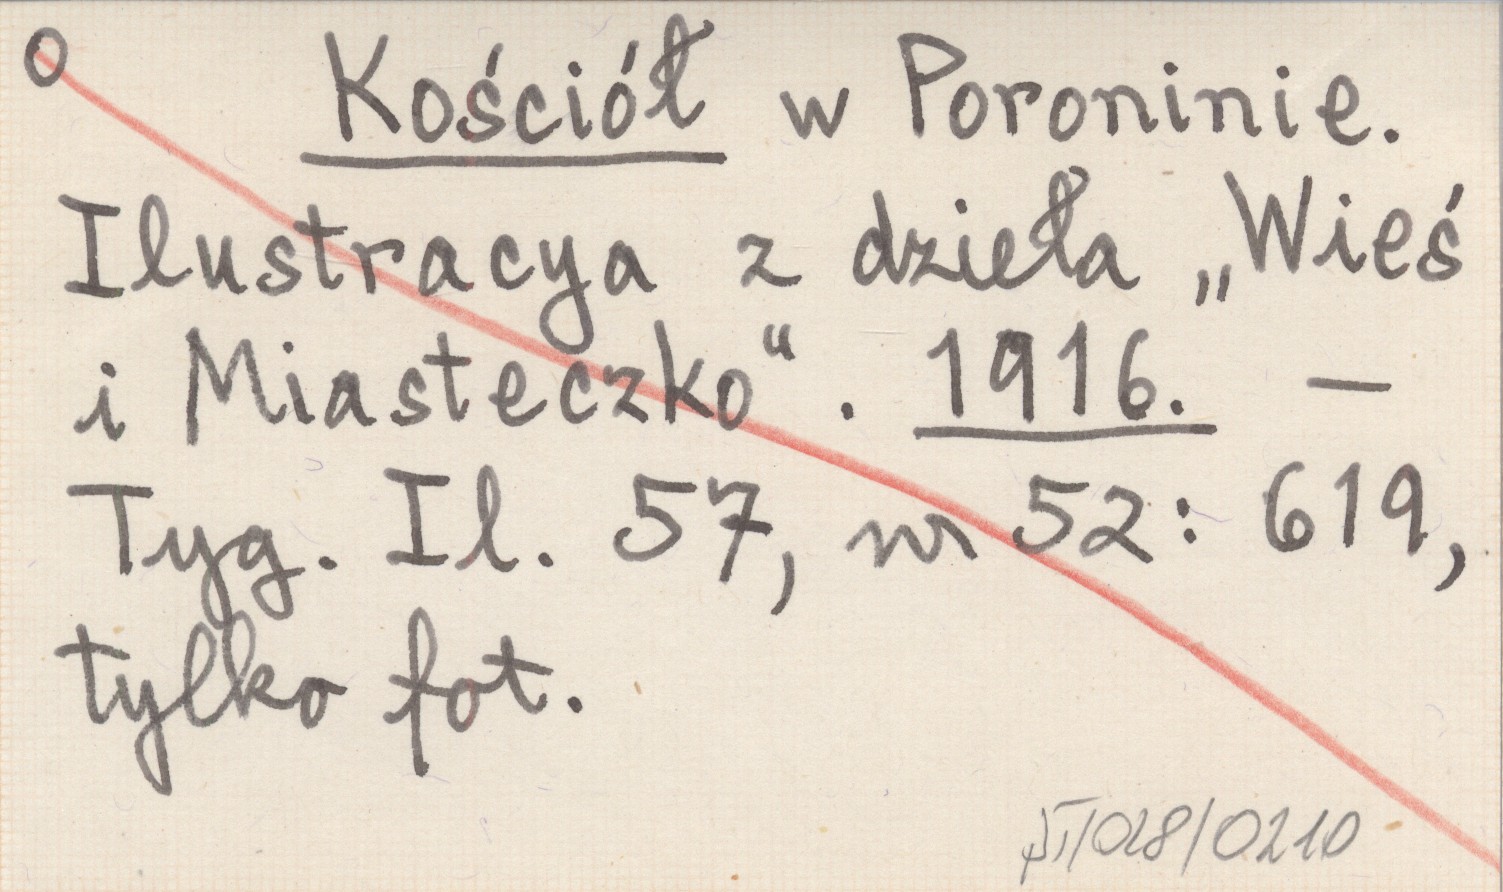 O
Kościół w Poroninie.
Ilustracya z dzieła „Wieś
i Miasteczko“. 1916. —
Tyg. Il. 57, nr 52: 619,
tylko fot.
/028/0210